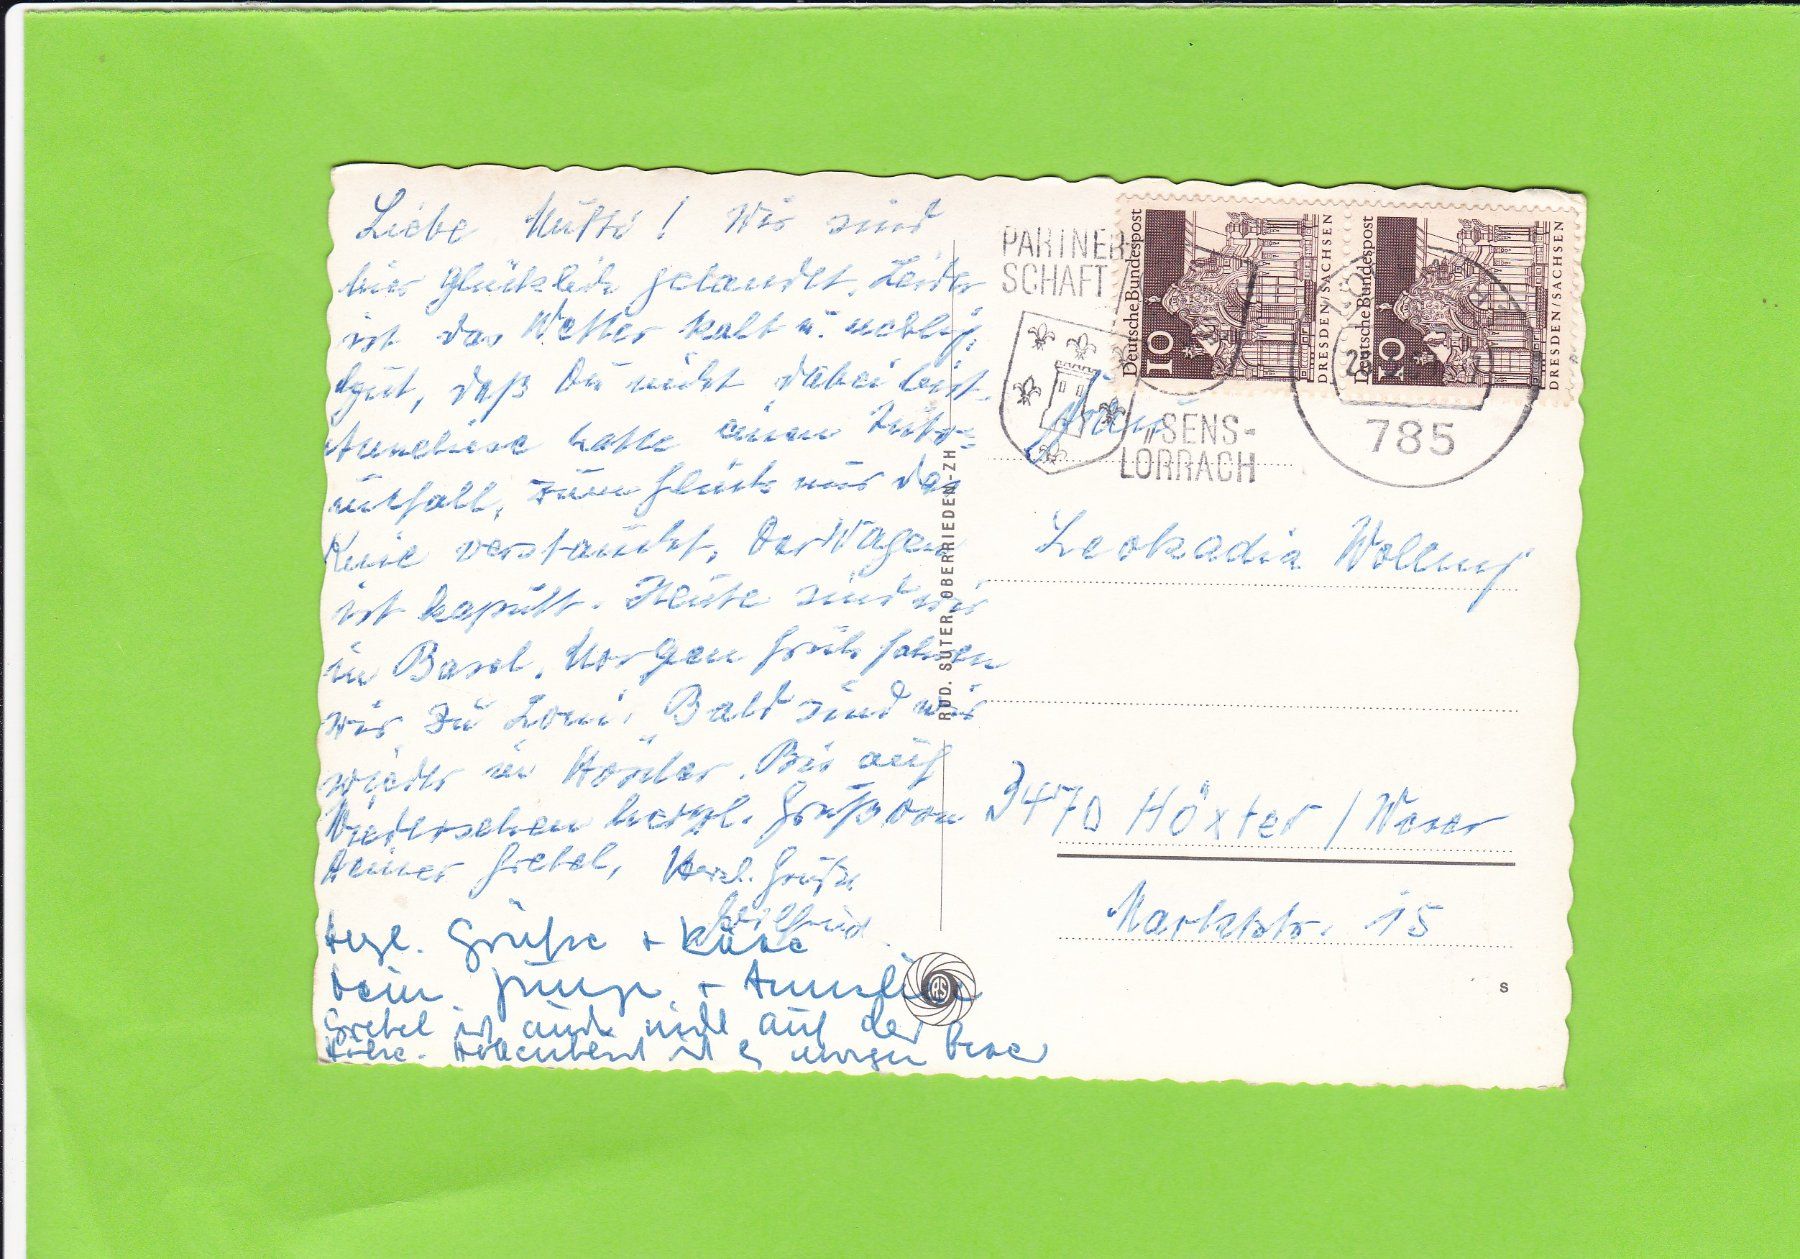 Liebe Mutti! Wir sind
hier glücklich gelandet. Leider
ist das Wetter kalt u. neblig.
gut, daß Du nicht dabei bist.
Anneliese hatte einen Auto=
unfall, zum Glück nur das
Knie verstaucht. Der Wagen
ist kaputt. Heute sind wir
in Basel. Morgen früh fahren
wir zu Loni. Bald sind wir
wieder in Höxter. Bis auf
Wiedersehen herzl. Grüße von
Deiner Gretel, Herzl. Grüße
Wilfried
Herzl. Grüße + Küsse
Dein + Anneliese
Gretel ist auch nicht auf der
Höhe. ist es morgen besser
RUD. SUTER, OBERRIEDEN-ZH
RS
PARTNER-
SCHAFT
SENS-
LÖRRACH
785
Deutsche Bundespost
10
DRESDEN/SACHSEN
Deutsche Bundespost
10
DRESDEN/SACHSEN
Frau
Leokadia Wollny
3470 Höxter / Weser
Marktstr. 15
s